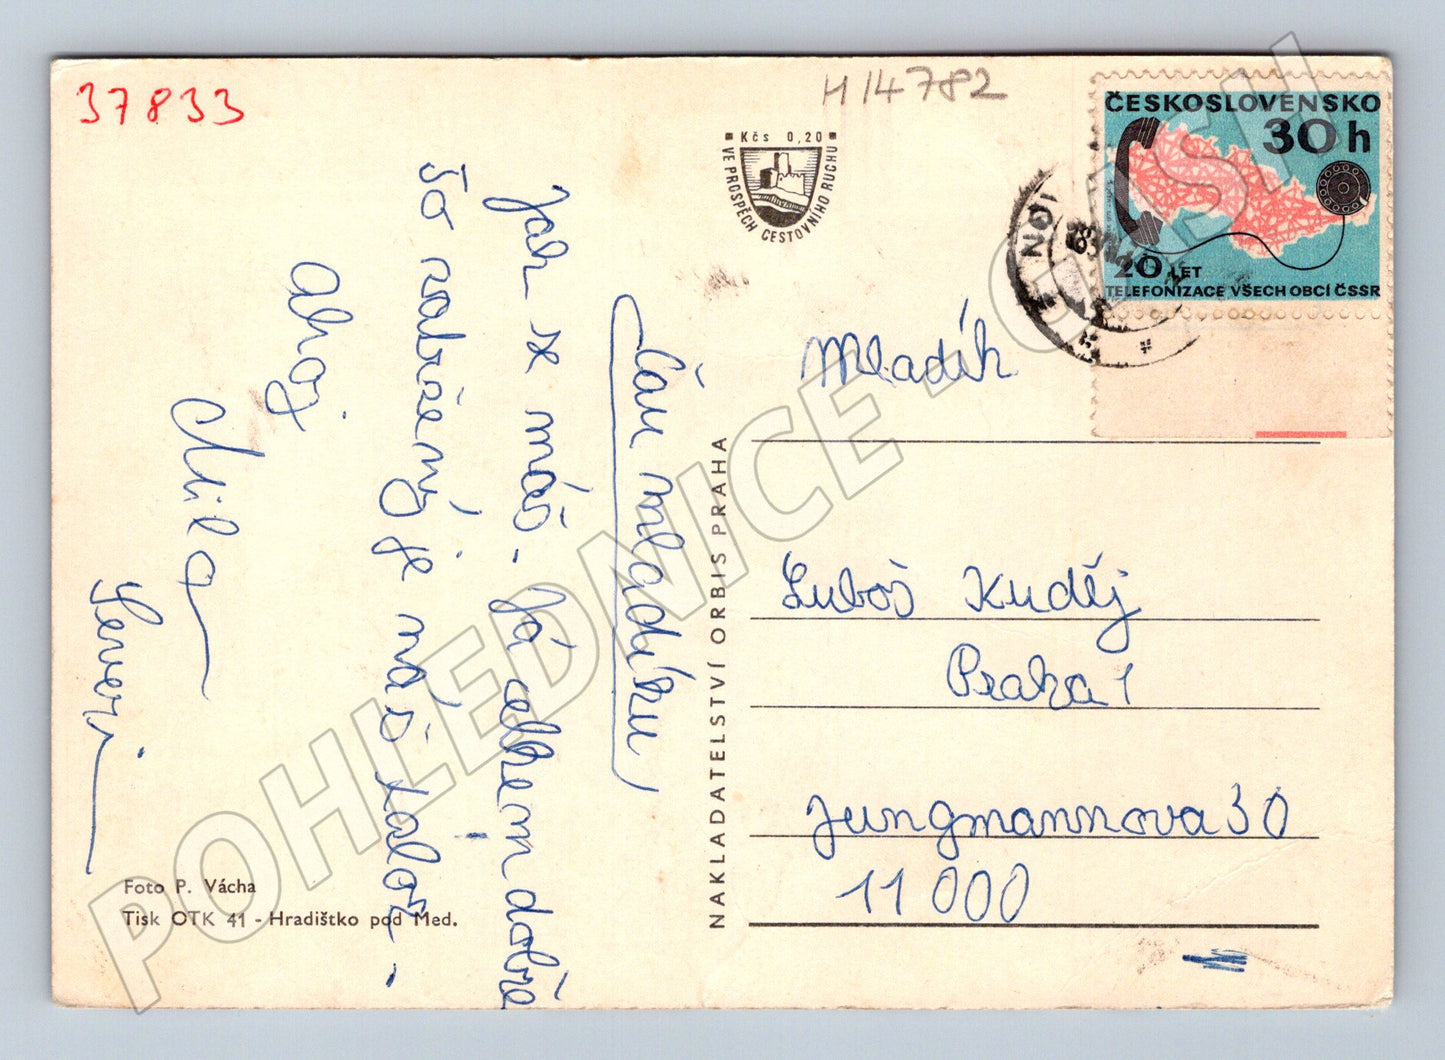 37833
H14782
Kčs 0,20
VE PROSPĚCH CESTOVNÍHO RUCHU
ČESKOSLOVENSKO
30 h
20 LET
TELEFONIZACE VŠECH OBCÍ ČSSR
Čau mladíku
Jak se máš. Já celkem dobře
To zabrčený je náš
Ahoj
Mila
NAKLADATELSTVÍ ORBIS PRAHA
Mladík
Luboš Kuděj
Praha 1
Jungmannova 30
11 000
Foto P. Vácha
Tisk OTK 41 - Hradištko pod Med.
POHLEDNICE